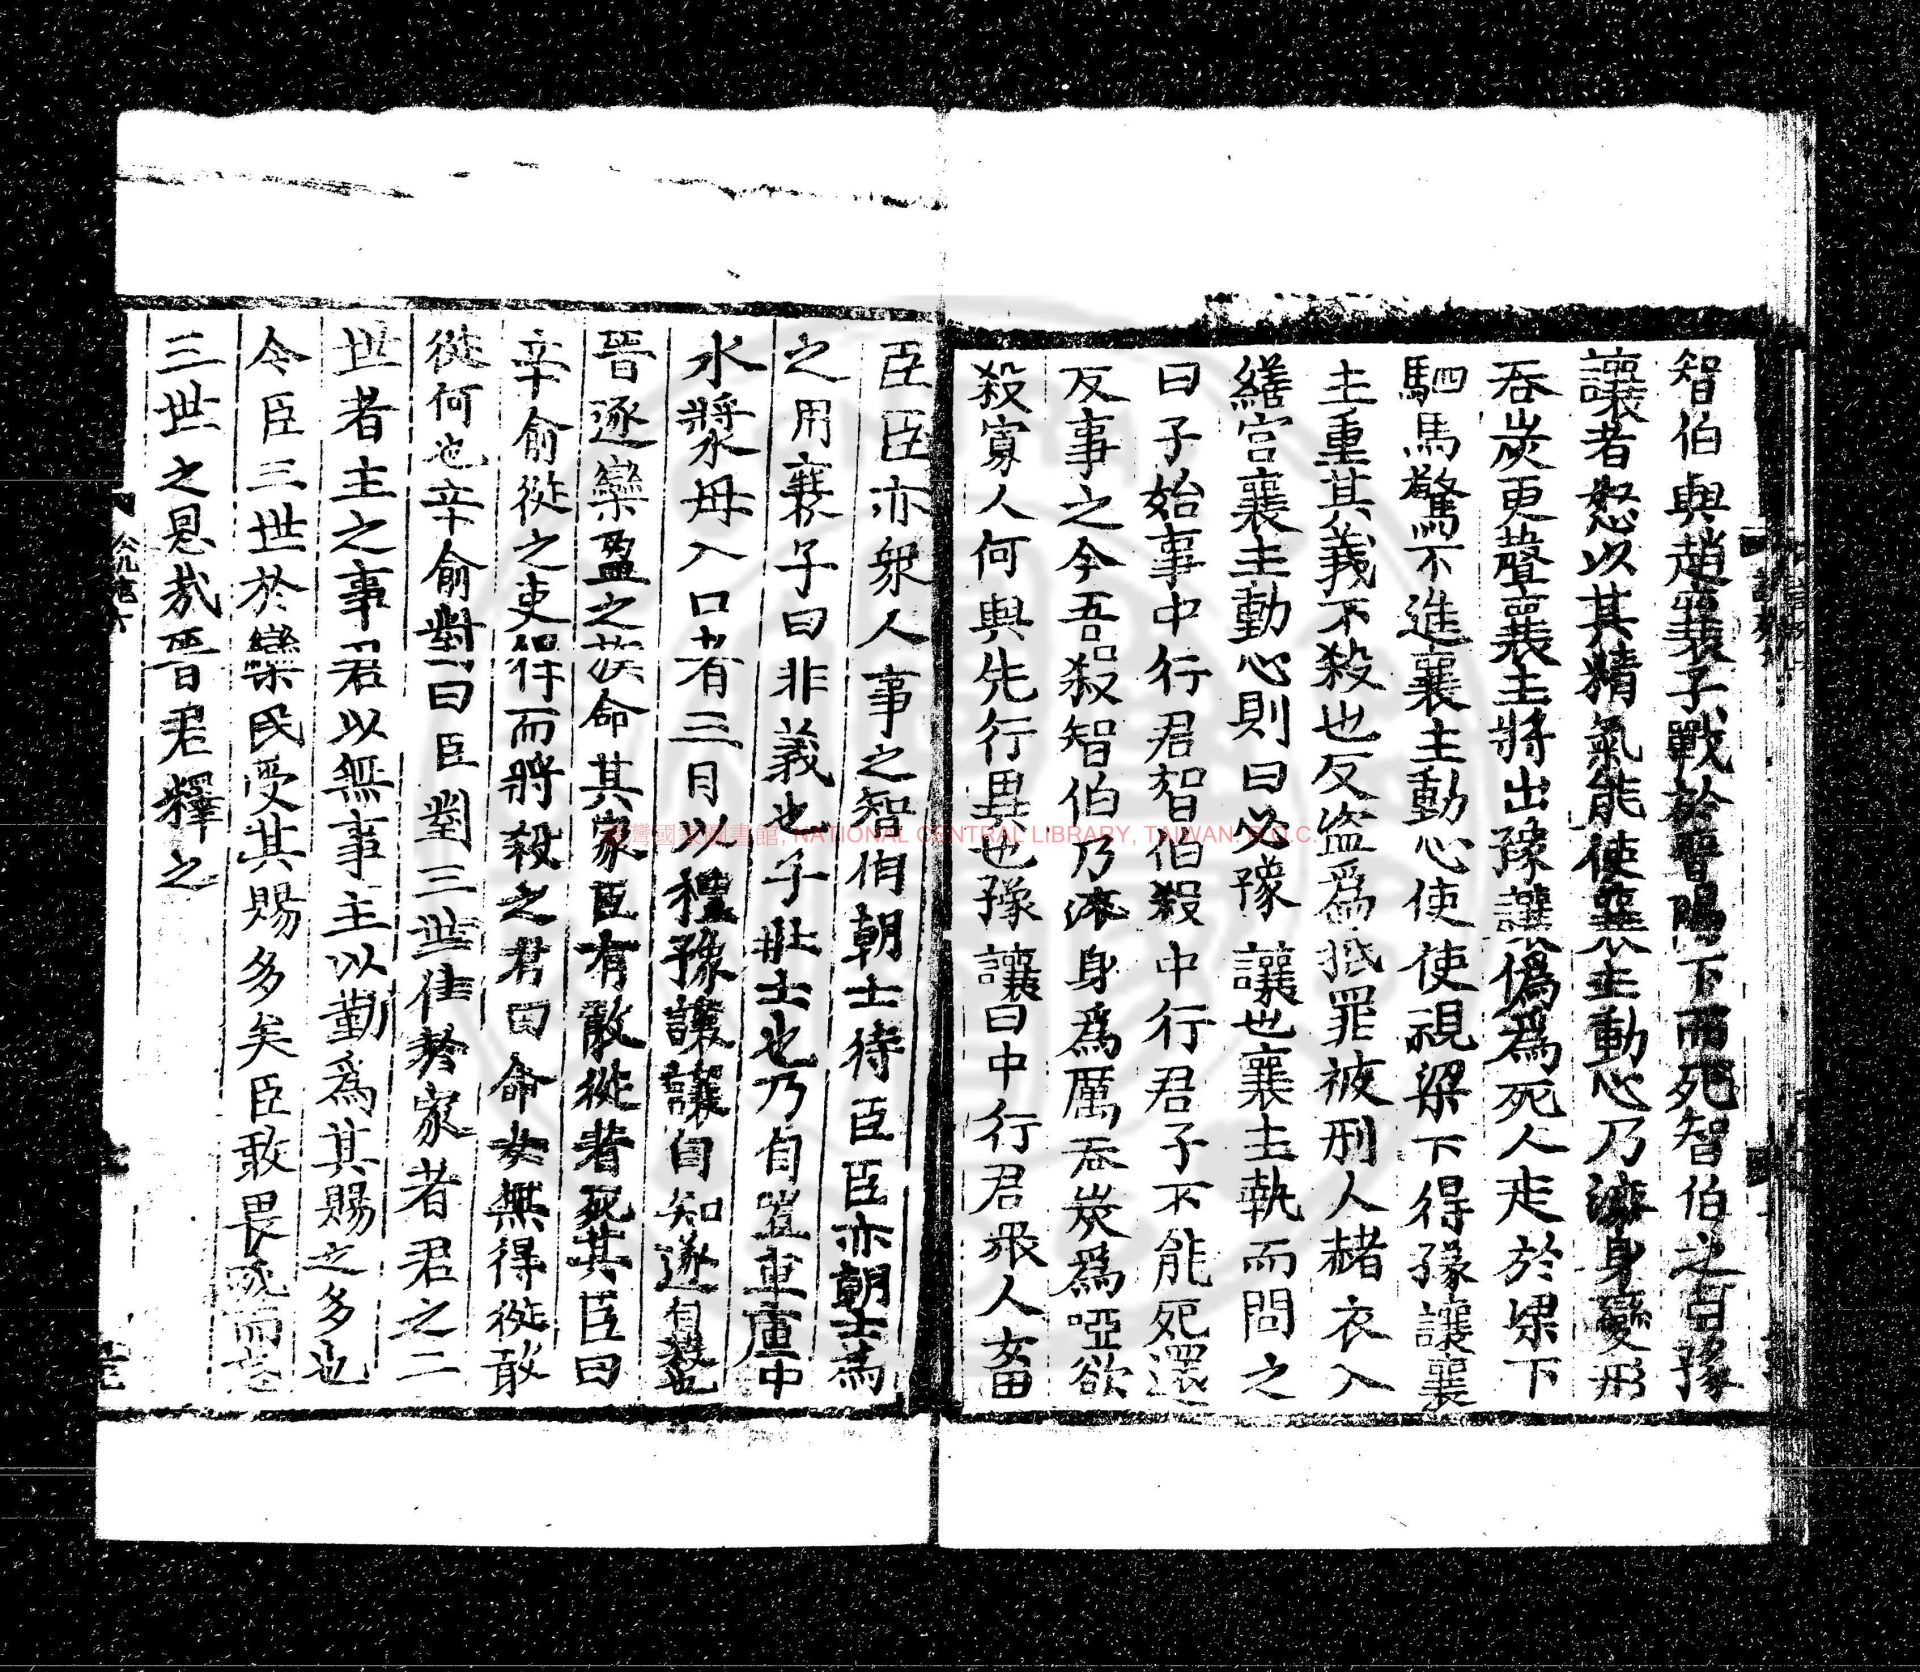 智伯與趙襄子戰於晉陽下而死智伯之臣豫
讓者怒以其精氣能使襄主動心乃漆身變形
吞炭更聲襄主將出豫讓偽為死人走於梁下
駟馬驚不進襄主動心使使視梁下得豫讓襄
主重其義不殺也反盜為抵罪被刑人赭衣入
繕宮襄主動心則曰必豫讓也襄主執而問之
曰子始事中行君智伯殺中行君子不能死還
反事之今吾殺智伯乃漆身為厲吞炭為啞欲
殺寡人何與先行異也豫讓曰中行君眾人畜
臣臣亦眾人事之智伯朝士待臣臣亦朝士為
之用襄子曰非義也子壯士也乃自置車庫中
水漿毋入口者三日以禮豫讓讓自知遂自殺也
晉逐欒盈之族命其家臣有敢從者死其臣曰
辛俞從之吏得而將殺之君曰命女無得從敢
從何也辛俞對曰臣聞三世仕於家者君之二
世者主之事君以無事主以勤為其賜之多也
今臣三世於欒氏受其賜多矣臣敢畏死而忘
三世之恩哉晉君釋之
臺灣國家圖書館, NATIONAL CENTRAL LIBRARY, TAIWAN, R.O.C.